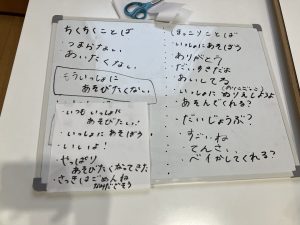 ちくちくことば
つまらない
あいたくない
もういっしょに
あそびたくない
・いつもいっしょに
あそびたい!
・いっしょにあそぼう
・いいよ!
・やっぱり
あそびたくなってきた
・さっきはごめんね
ほっこりことば
・いっしょにあそぼう
ありがとう
・だいすきだよ
・あいしてる
・いっしょにぬりえしようよ
・あそんでくれる?
・だいじょうぶ?
・すごいね
・てんさい
かしてくれる?